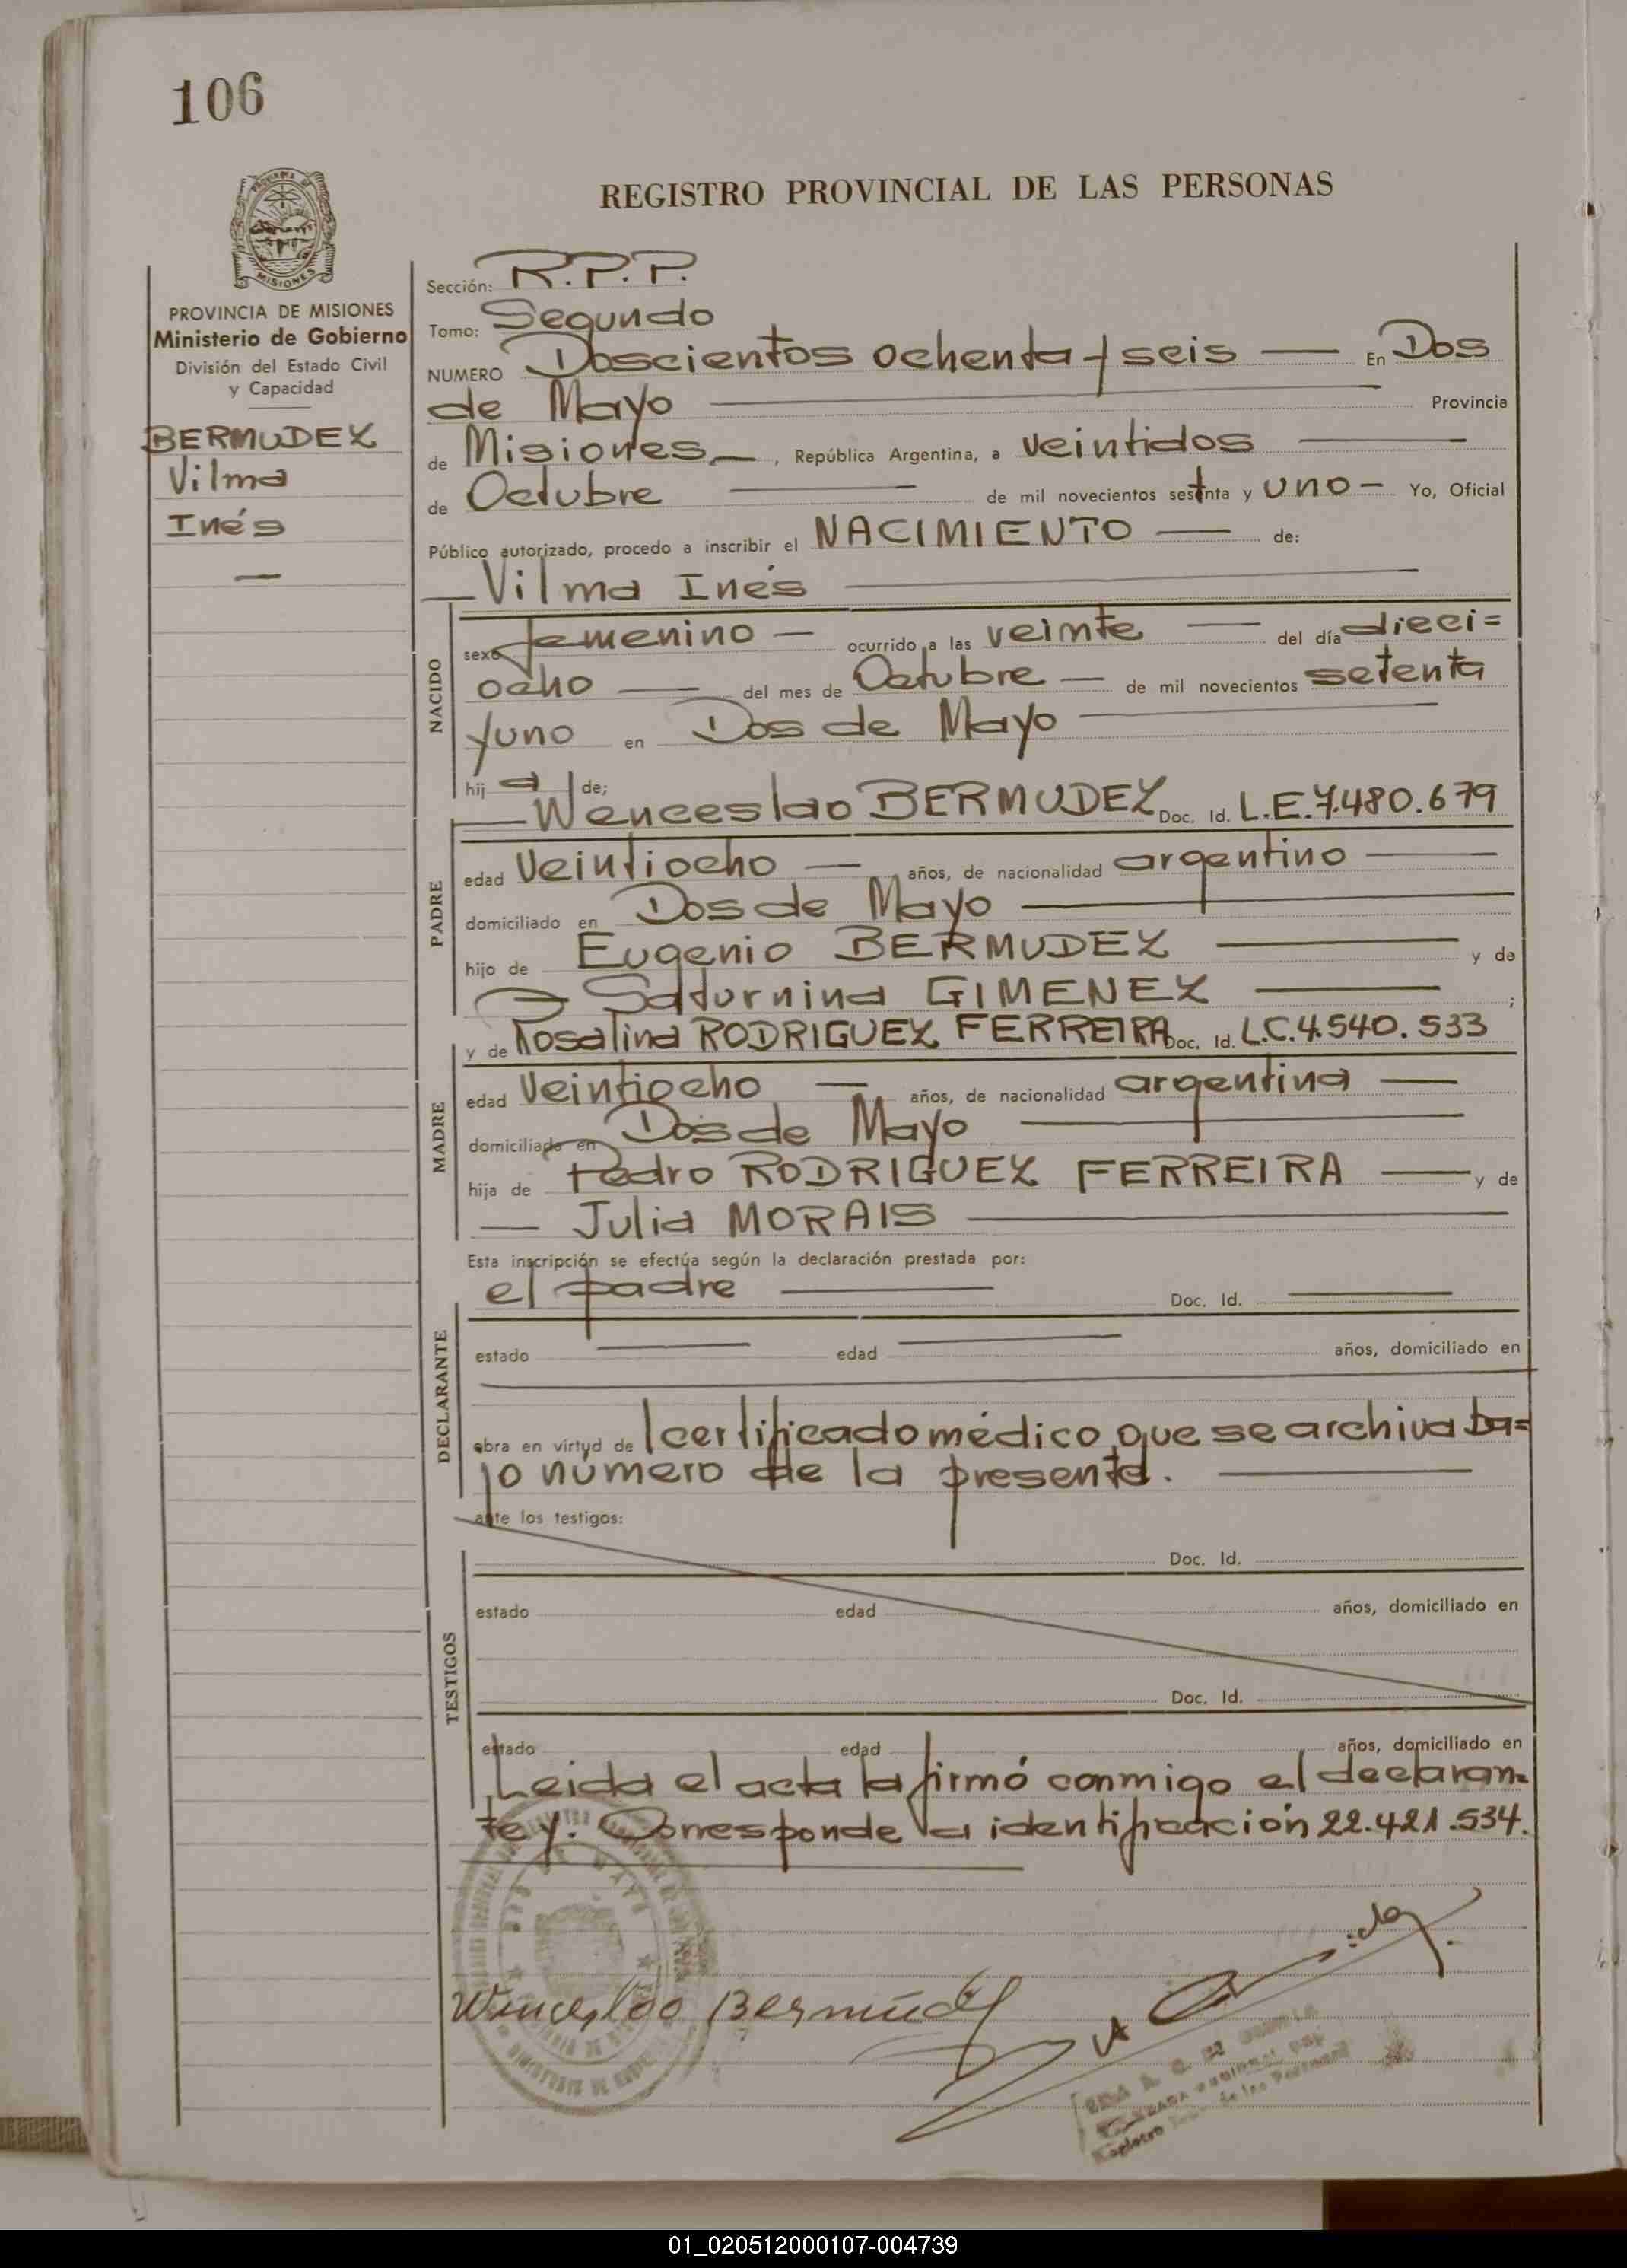 106
REGISTRO PROVINCIAL DE LAS PERSONAS
MISIONES
PROVINCIA DE MISIONES
Ministerio de Gobierno
División del Estado Civil
y Capacidad
BERMUDEZ
Vilma
Inés
—
Sección: R.P.P.
Tomo: Segundo
NUMERO Doscientos ochenta y seis — En Dos
de Mayo — Provincia
de Misiones —, República Argentina, a veintidos —
de Octubre — de mil novecientos setenta y uno — Yo, Oficial
Público autorizado, procedo a inscribir el NACIMIENTO — de:
— Vilma Inés —
NACIDO
sexo femenino — ocurrido a las veinte — del día dieci=
ocho — del mes de Octubre — de mil novecientos setenta
y uno en Dos de Mayo —
hij a de;
— Wenceslao BERMUDEZ Doc. Id. L.E.7.480.679
PADRE
edad veintiocho — años, de nacionalidad argentino —
domiciliado en Dos de Mayo —
hijo de Eugenio BERMUDEZ — y de
Saturnina GIMENEZ — ;
y de Rosalina RODRIGUEZ FERREIRA Doc. Id. L.C.4.540.533
MADRE
edad veintiocho — años, de nacionalidad argentina —
domiciliada en Dos de Mayo —
hija de Pedro RODRIGUEZ FERREIRA — y de
— Julia MORAIS —
Esta inscripción se efectúa según la declaración prestada por:
el padre — Doc. Id. —
DECLARANTE
estado — edad — años, domiciliado en
—
obra en virtud de l certificado médico que se archiva ba=
jo número de la presente. —
ante los testigos:
Doc. Id.
TESTIGOS
estado edad años, domiciliado en
Doc. Id.
estado edad años, domiciliado en
Leida el acta la firmó conmigo el declaran=
te y. Corresponde la identificación 22.421.534.
Wenceslao Bermúdez
01_020512000107-004739